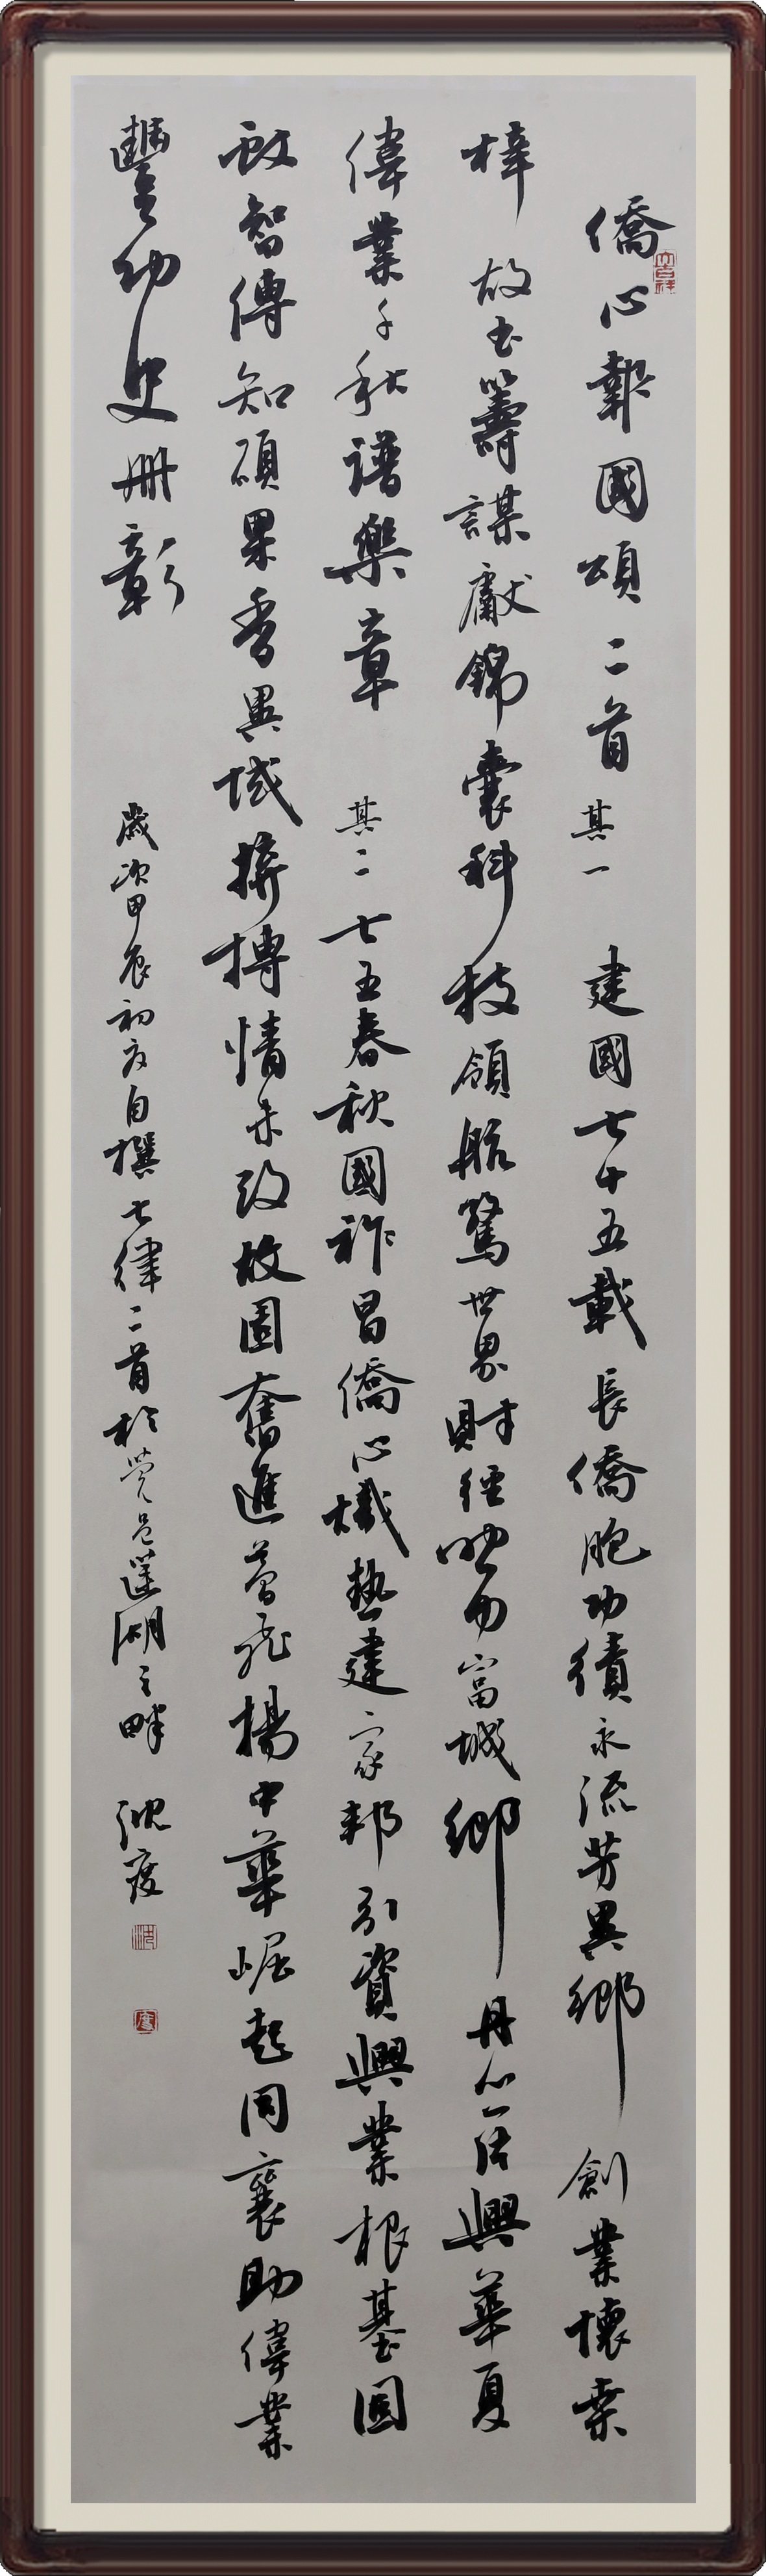 僑心報國頌二首 其一 建國七十五載長僑胞功績永流芳異鄉創業懷桑
梓故土籌謀獻錦囊科技領航驚世界財經助力富城鄉丹心一興華夏
偉業千秋譜樂章 其二 七五春秋國祚昌僑心熾熱建家邦引資興業根基固
啟智傳知碩果香異域拚搏情未改故園奮進夢飛揚中華崛起同襄助偉業
豐功史冊彰 歲次甲辰初夏自撰七律二首於莞邑蓮湖之畔 沈度
大吉祥
沈
度